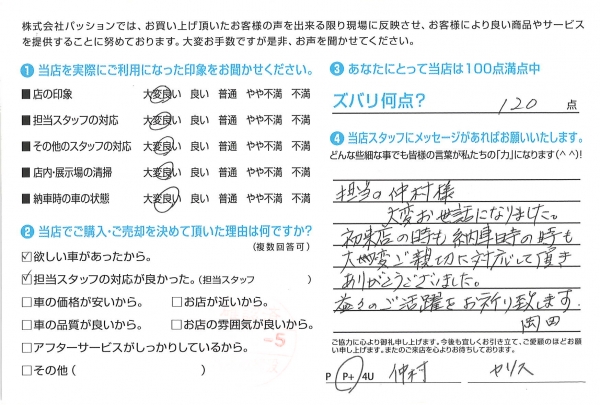 株式会社パッションでは、お買い上げ頂いたお客様の声を出来る限り現場に反映させ、お客様により良い商品やサービス
を提供することに努めております。大変お手数ですが是非、お声を聞かせてください。
① 当店を実際にご利用になった印象をお聞かせください。
■ 店の印象 大変良い 良い 普通 やや不満 不満
■ 担当スタッフの対応 大変良い 良い 普通 やや不満 不満
■ その他のスタッフの対応 大変良い 良い 普通 やや不満 不満
■ 店内・展示場の清掃 大変良い 良い 普通 やや不満 不満
■ 納車時の車の状態 大変良い 良い 普通 やや不満 不満
② 当店でご購入・ご売却を決めて頂いた理由は何ですか?
(複数回答可)
☑欲しい車があったから。
☑担当スタッフの対応が良かった。(担当スタッフ )
□車の価格が安いから。 □お店が近いから。
□車の品質が良いから。 □お店の雰囲気が良いから。
□アフターサービスがしっかりしているから。
□その他( )
③ あなたにとって当店は100点満点中
ズバリ何点? 120 点
④ 当店スタッフにメッセージがあればお願いいたします。
どんな些細な事でも皆様の言葉が私たちの「力」になります(^^)!
担当の仲村様
大変お世話になりました。
初来店の時も納車時の時も
大変ご親切に対応して頂き
ありがとうございました。
益々のご活躍をお祈り致します。
岡田
ご協力に心より御礼申し上げます。今後も宜しくお引き立て、ご愛顧のほどお願
い申し上げます。またのご来店を心よりお待ちしております。
P P+ 4U 仲村 ヤリス